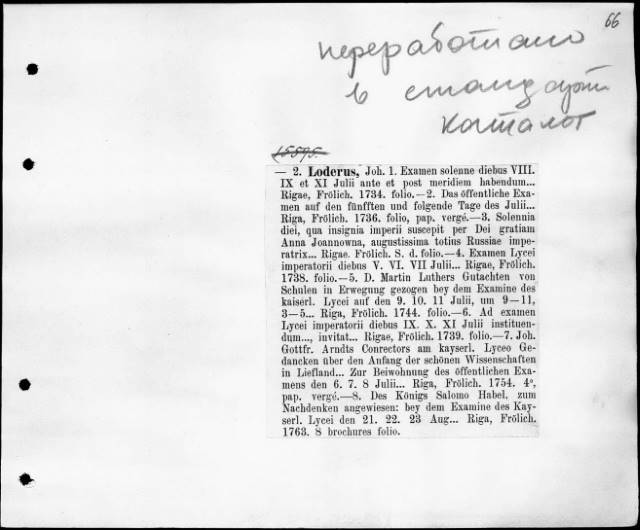 66
переработано
в стандарт
каталог
15595.
— 2. Loderus, Joh. 1. Examen solenne diebus VIII.
IX et XI Julii ante et post meridiem habendum...
Rigae, Frölich. 1734. folio.—2. Das öffentliche Exa-
men auf den fünfften und folgende Tage des Julii...
Riga, Frölich. 1736. folio, pap. vergé.—3. Solennia
diei, qua insignia imperii suscepit per Dei gratiam
Anna Joannowna, augustissima totius Russiae impe-
ratrix... Rigae. Frölich. S. d. folio.—4. Examen Lycei
imperatorii diebus V. VI. VII Julii... Rigae, Frölich.
1738. folio.—5. D. Martin Luthers Gutachten von
Schulen in Erwegung gezogen bey dem Examine des
kaiserl. Lycei auf den 9. 10. 11 Julii, um 9—11,
3—5... Riga, Frölich. 1744. folio.—6. Ad examen
Lycei imperatorii diebus IX. X. XI Julii instituen-
dum..., invitat... Rigae, Frölich. 1739. folio.—7. Joh.
Gottfr. Arndts Conrectors am kayserl. Lyceo Ge-
dancken über den Anfang der schönen Wissenschaften
in Liefland... Zur Beiwohnung des öffentlichen Exa-
mens den 6. 7. 8 Julii... Riga, Frölich. 1754. 4°,
pap. vergé.—8. Des Königs Salomo Habel, zum
Nachdenken angewiesen: bey dem Examine des Kay-
serl. Lycei den 21. 22. 23 Aug... Riga, Frölich.
1763. 8 brochures folio.